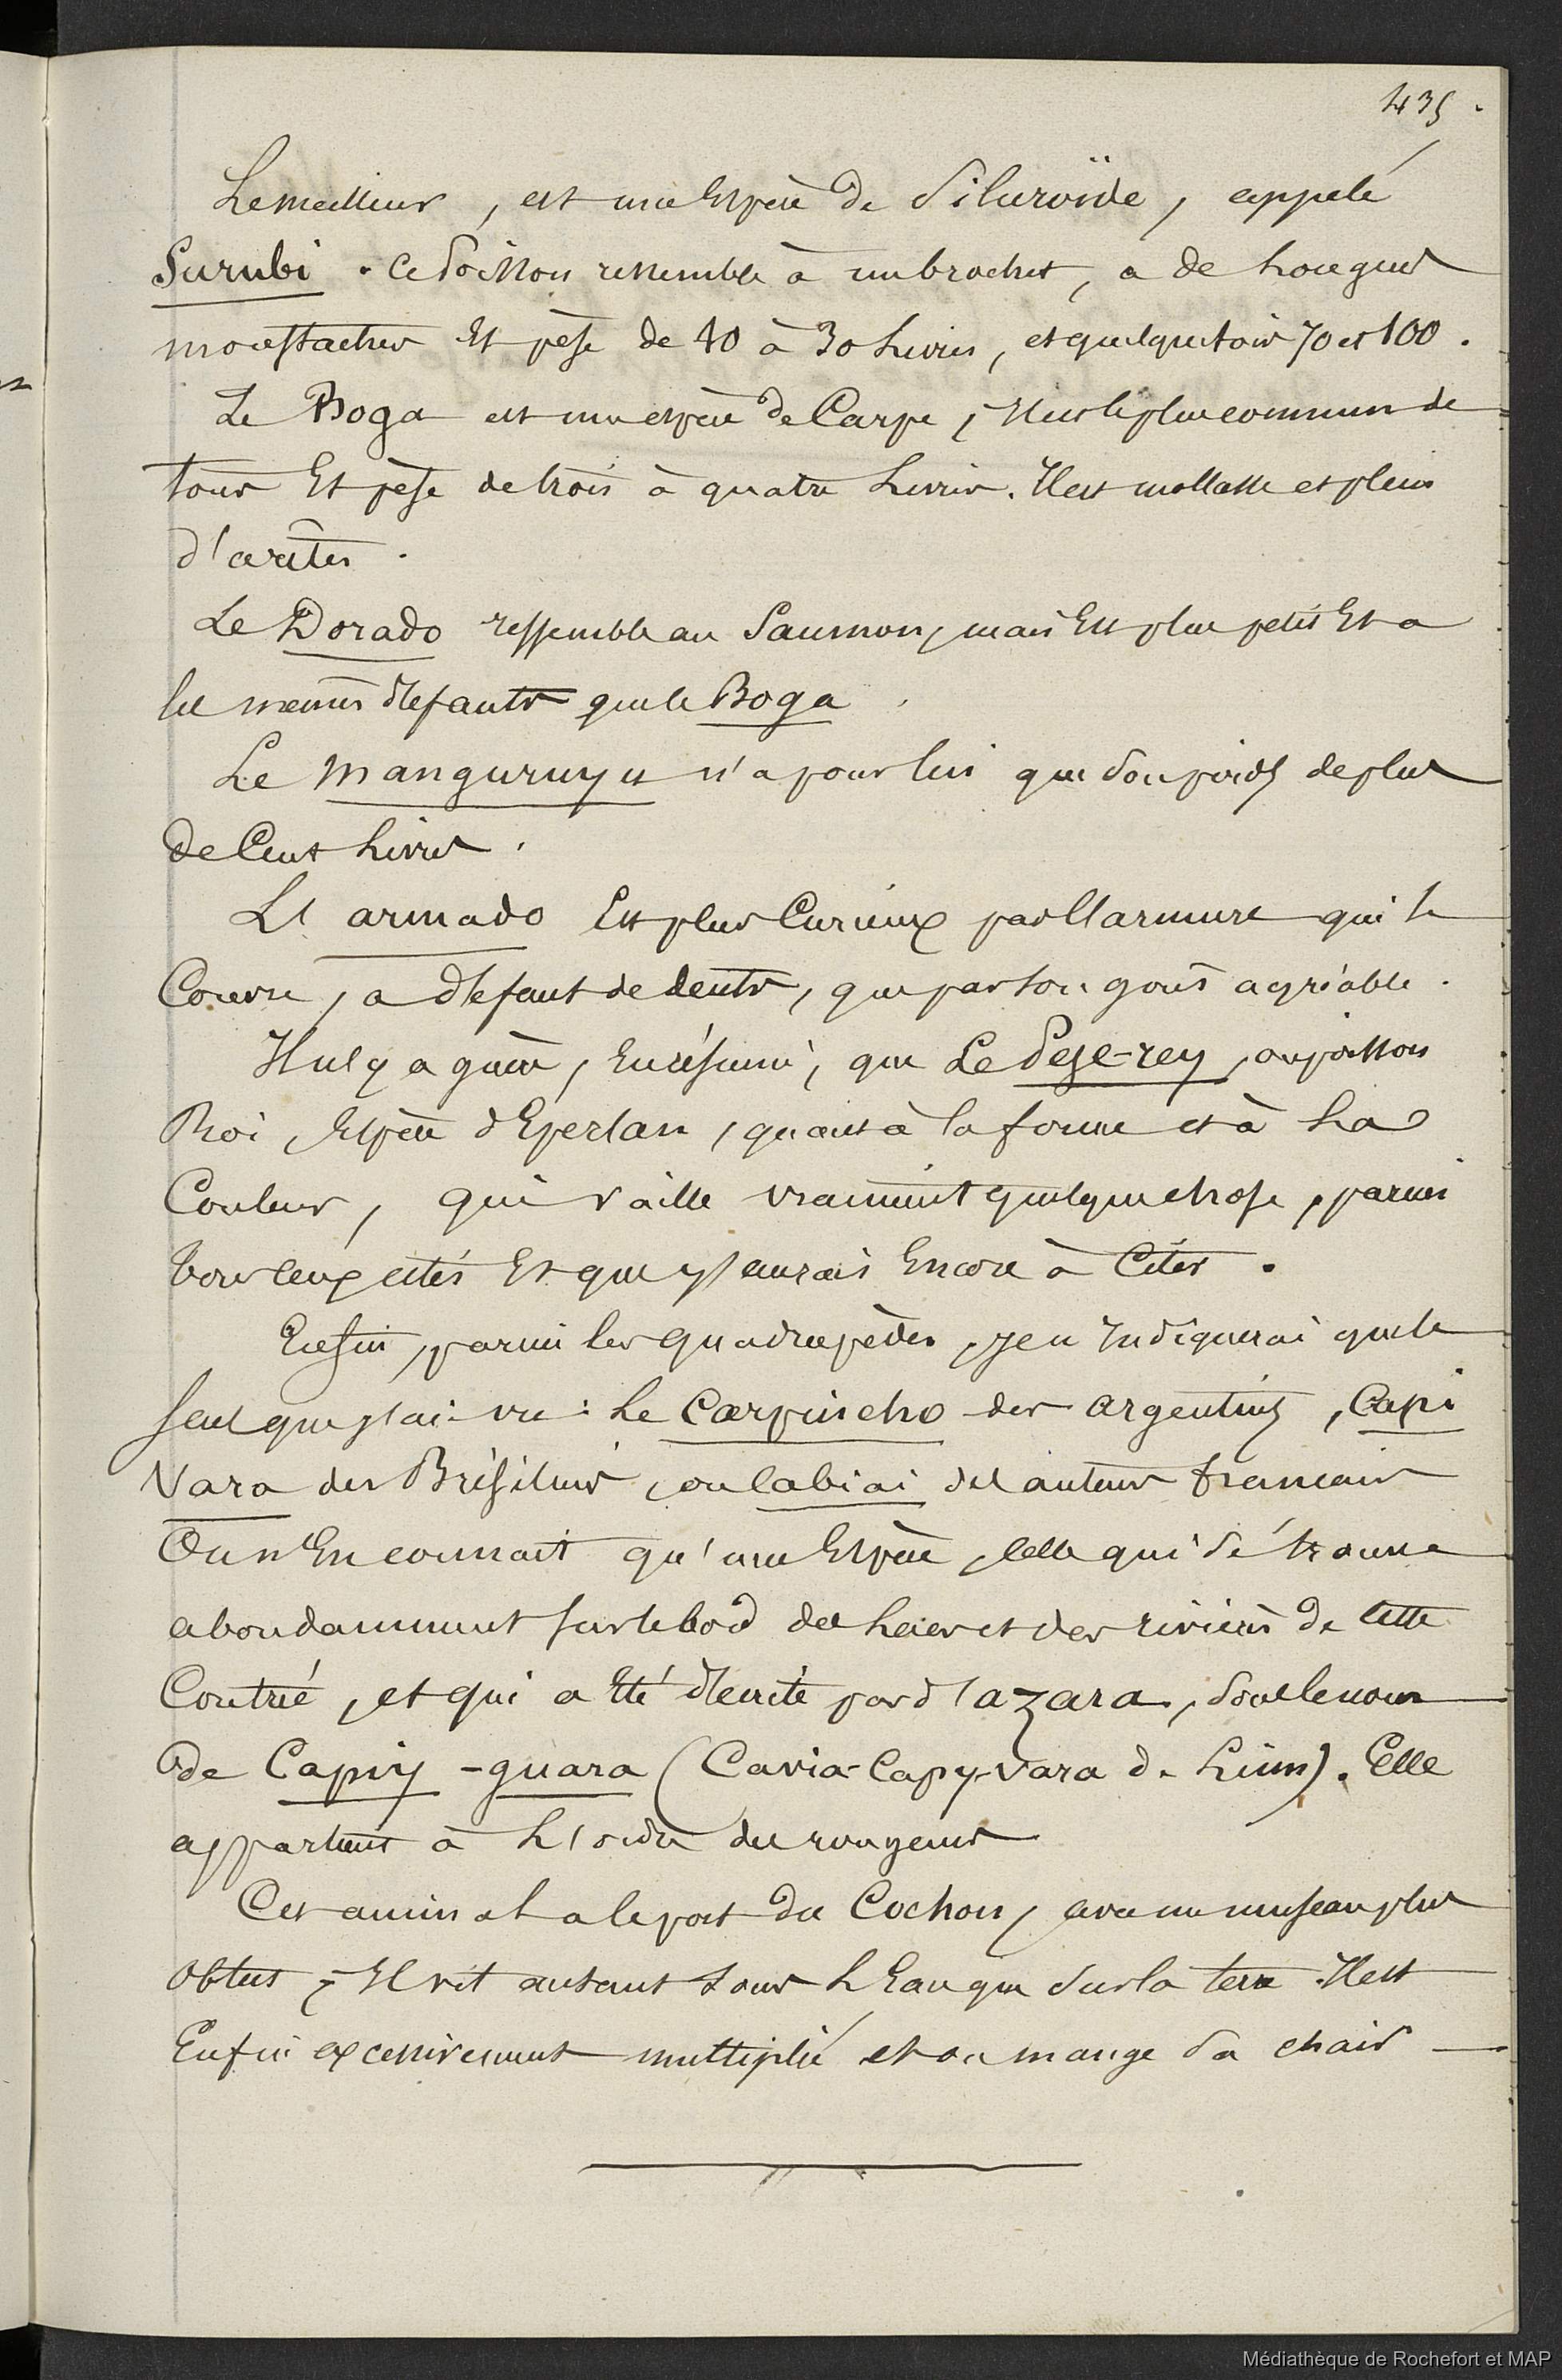 435.
Le meilleur, est une Espèce de Siluroïde, appelé
Surubi. Ce Poisson ressemble à un brochet, a de Longues
moustaches Et pèse de 10 à 30 Livres, et quelquefois 70 et 100.
Le Boga est une espèce de Carpe, Il est le plus commun de
tous Et pèse de trois à quatre Livres. Il est mollasse et plein
d'arêtes.
Le Dorado ressemble au Saumon, mais Est plus petit Et a
les mêmes défauts que le Boga.
Le Manguruyu n'a pour lui que Son poids de plus
de Cent Livres.
L'armado Est plus Curieux par l'armure qui le
Couvre, a défaut de dents, que par Son goût agréable.
Il n'y a guère, En résumé, que Le Peje-rey, ou poisson
Roi, Espèce d'Eperlan, quant à la forme et à La
Couleur, qui vaille vraiment quelque chose, parmi
tous ceux cités Et que j'aurais Encore à Citer.
Enfin, parmi les quadrupèdes, je n'Indiquerai que le
Seul que j'ai vu : Le Carpincho des argentins, Capi
Vara des Brésiliens, ou Cabiai des auteurs français
On n'En connait qu'une Espèce, Celle qui Se trouve
abondamment Sur le bord des Lacs et des rivières de Cette
Contrée, et qui a Eté décrite par d'azara, Sous le nom
de Capiy-guara (Cavia-Capy-vara de Linn). Elle
appartient à L'ordre des rongeurs
Cet animal a le port du Cochon, avec un museau plus
obtus, Il vit autant Sous L'Eau que Sur la terre. Il est
Enfin excessivement multiplié et on mange Sa chair
Médiathèque de Rochefort et MAP